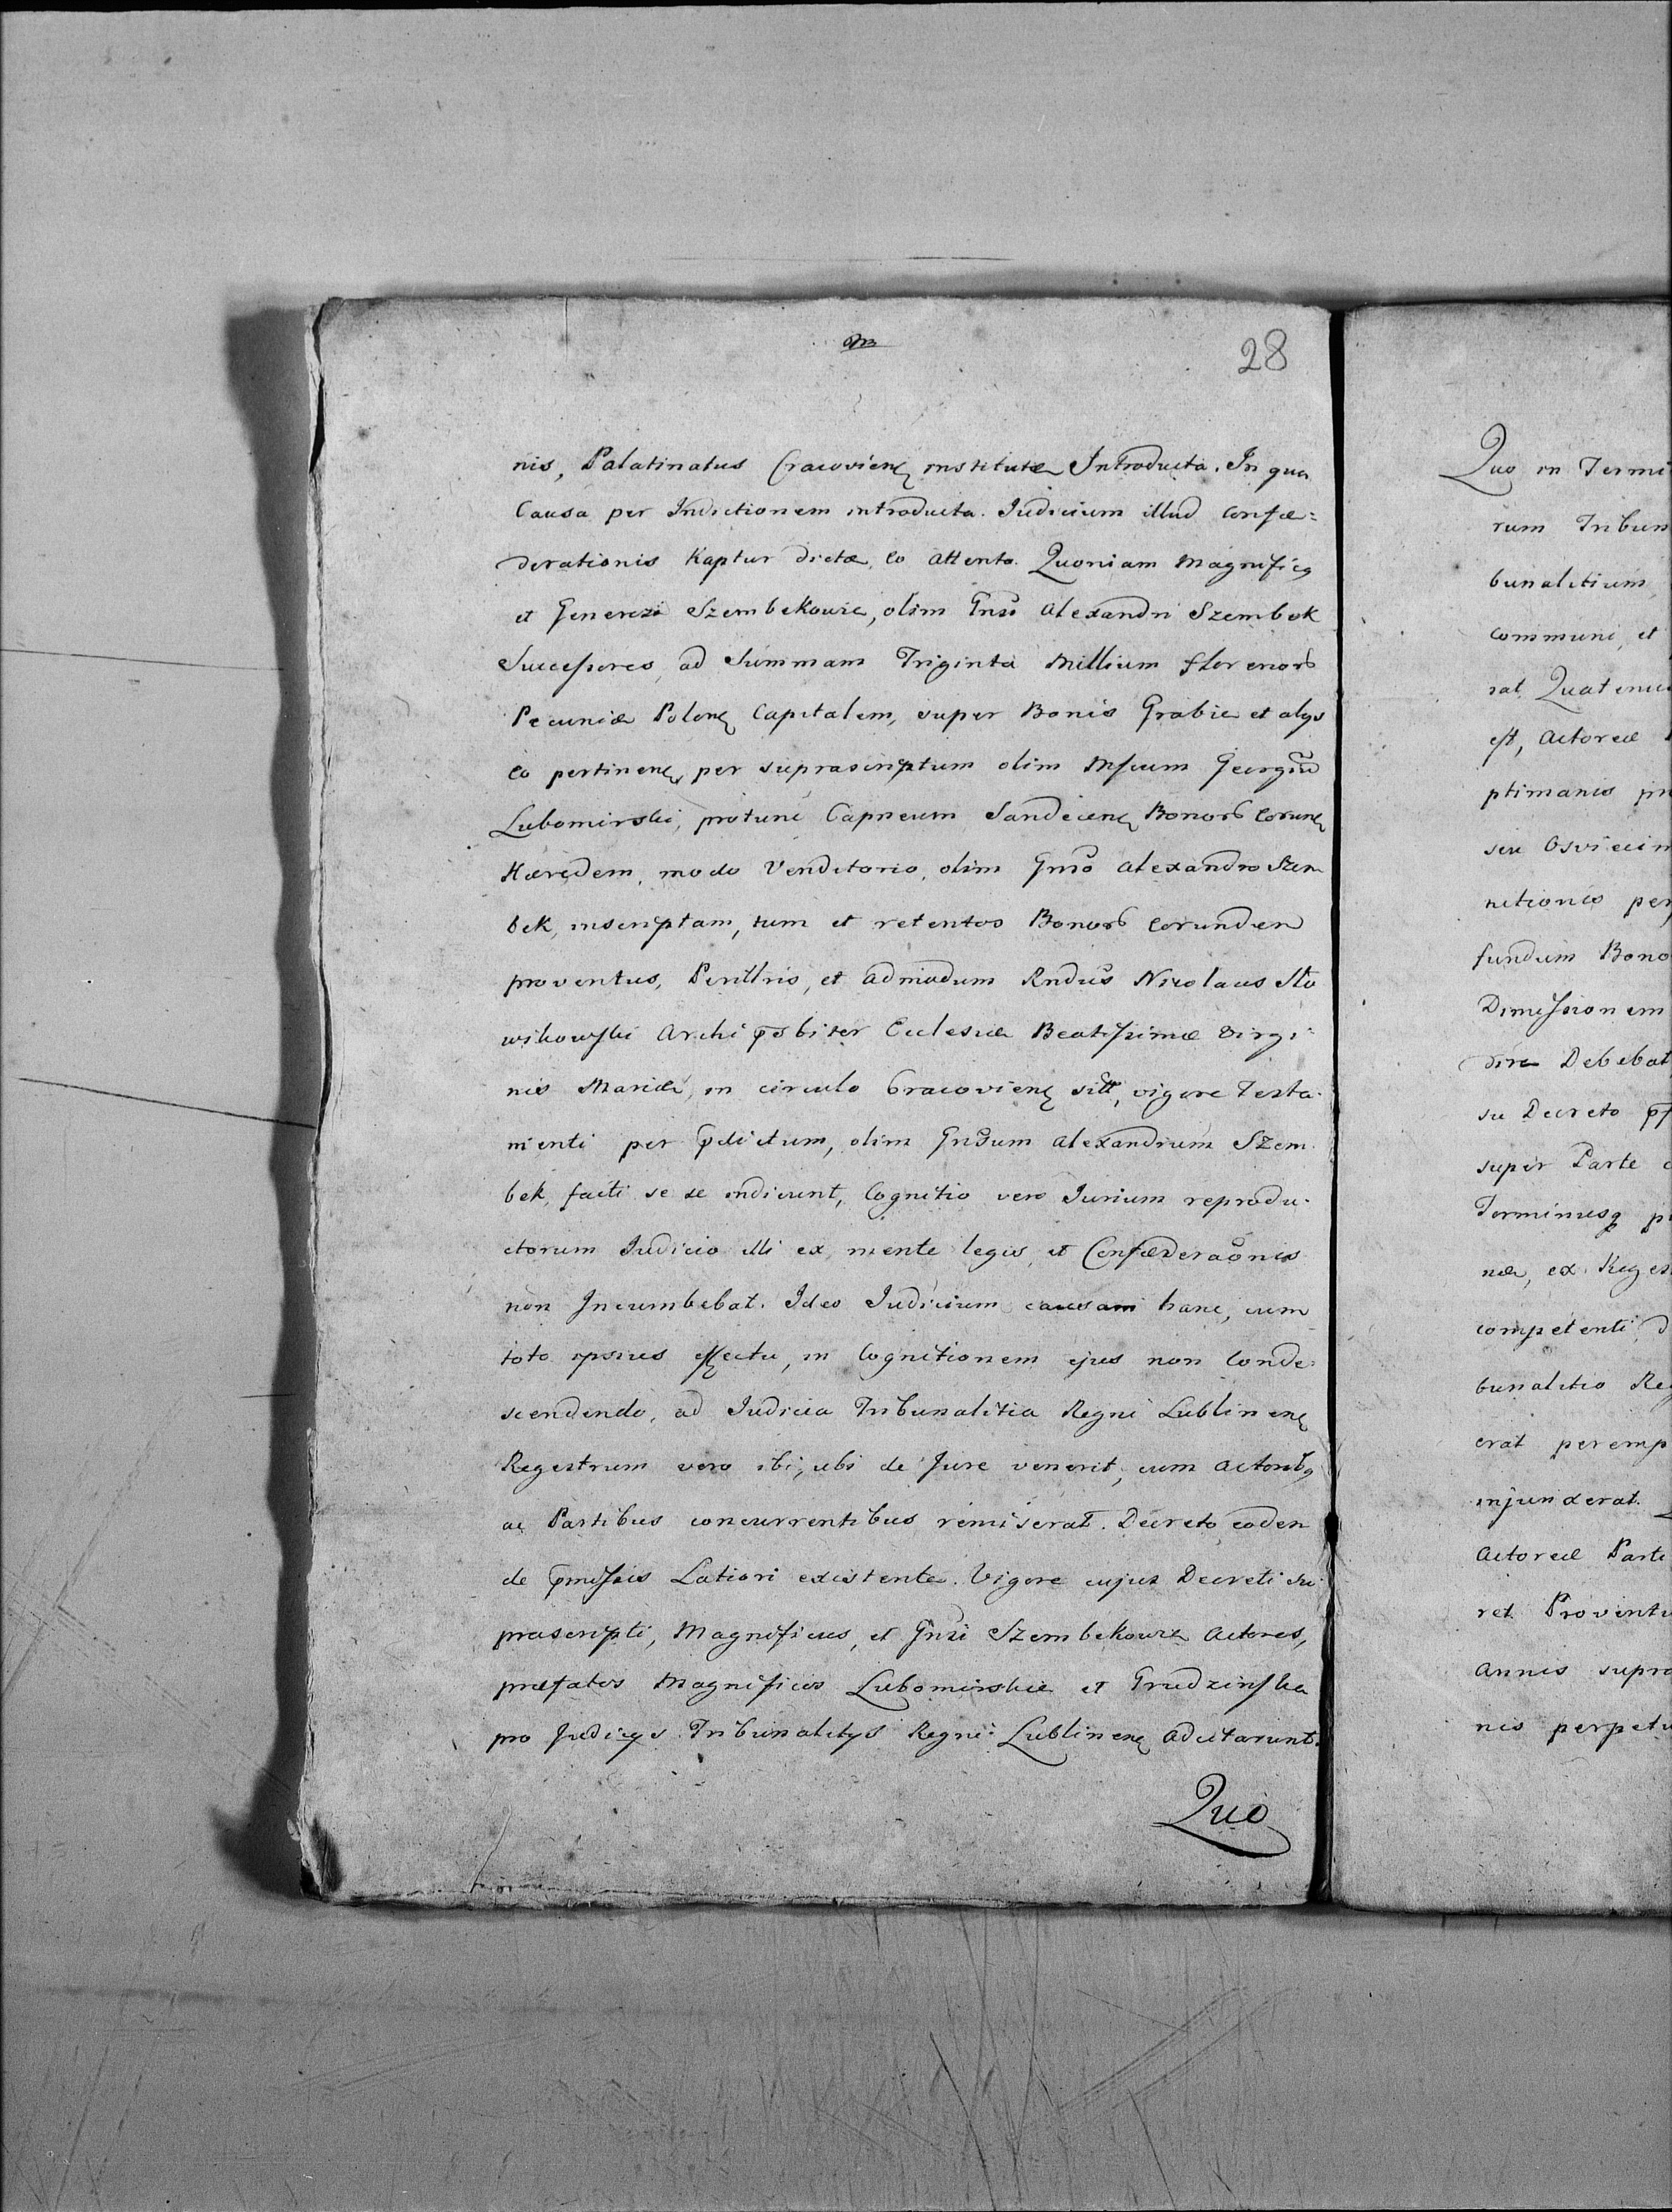 28
nis, Palatinatus Cracovien institutæ Introducta. In qua
Causa per Indictionem introducta. Judicium illud confæ=
derationis Kaptur dictæ, eo attento. Quoniam Magnificg
et Generosi Szembekowie, olim Gnsi Alexandri Szembek
Successores, ad Summam Triginta Millium florenorb
Pecuniæ Polon Capitalem, super Bonis Grabie et alys
eo pertinen, per suprascriptum olim Mfcum Georgiu
Lubomirski, protunc Capneum Sandecien Bonorb Eorun
Hæredem, modo Venditorio, olim Gnso Alexandro Szem
bek, inscriptam, tum et retentos Bonorb Eorundem
proventus, Perillris, et admodum Rndus Nicolaus Sło
wikowski Archi psbiter Ecclesiæ Beatissimæ Virgi
nis Mariæ, in circulo Cracovien sitt, vigore Testa.
menti per pdictum, olim Gnsum Alexandrum Szem
bek, facti se se indicunt, Cognitio vero Jurium reprodu.
ctorum Judicio illi ex mente legis, et Confæderaonis
non Incumbebat. Ideo Judicium causam hanc, cum
toto ipsius effectu, in Cognitionem ejus non Conde.
scendendo, ad Judicia Tribunalitia Regni Lublinen
Regestrum vero ibi, ubi de Jure venerit, cum Actoribg
ac Partibus concurrentibus remiserat. Decreto eodem
de pmissis Latiori existente. Vigore cujus Decreti su
prascripti, Magnificus, et Gnsi Szembekowie Actores,
præfatos Magnificos Lubomirskie et Grudzinska
pro Judicys Tribunalitys Regni Lublinen adcitarunt.
Quo
Quo in Termi
rum Tribun
bunalitium
communi, et
rat, Quatenus
est, Actoreæ
ptimanis
seu Osviecim
nitionis per
fundum Bono
Dimissionem
dire Debebat
su Decreto
super Parte
Terminusq
næ, ex Reges
competenti
bunalitio Reg
erat peremp
injunxerat.
Actoreæ Parti
ret Proventu
annis supra
nis perpetu